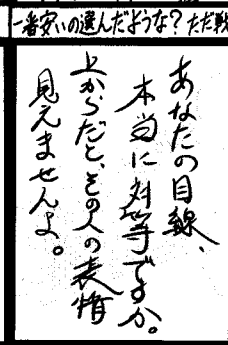 一番安いの選んだような?ただ戦
あなたの目線、
本当に対等ですか。
上からだと、その人の表情
見えませんよ。